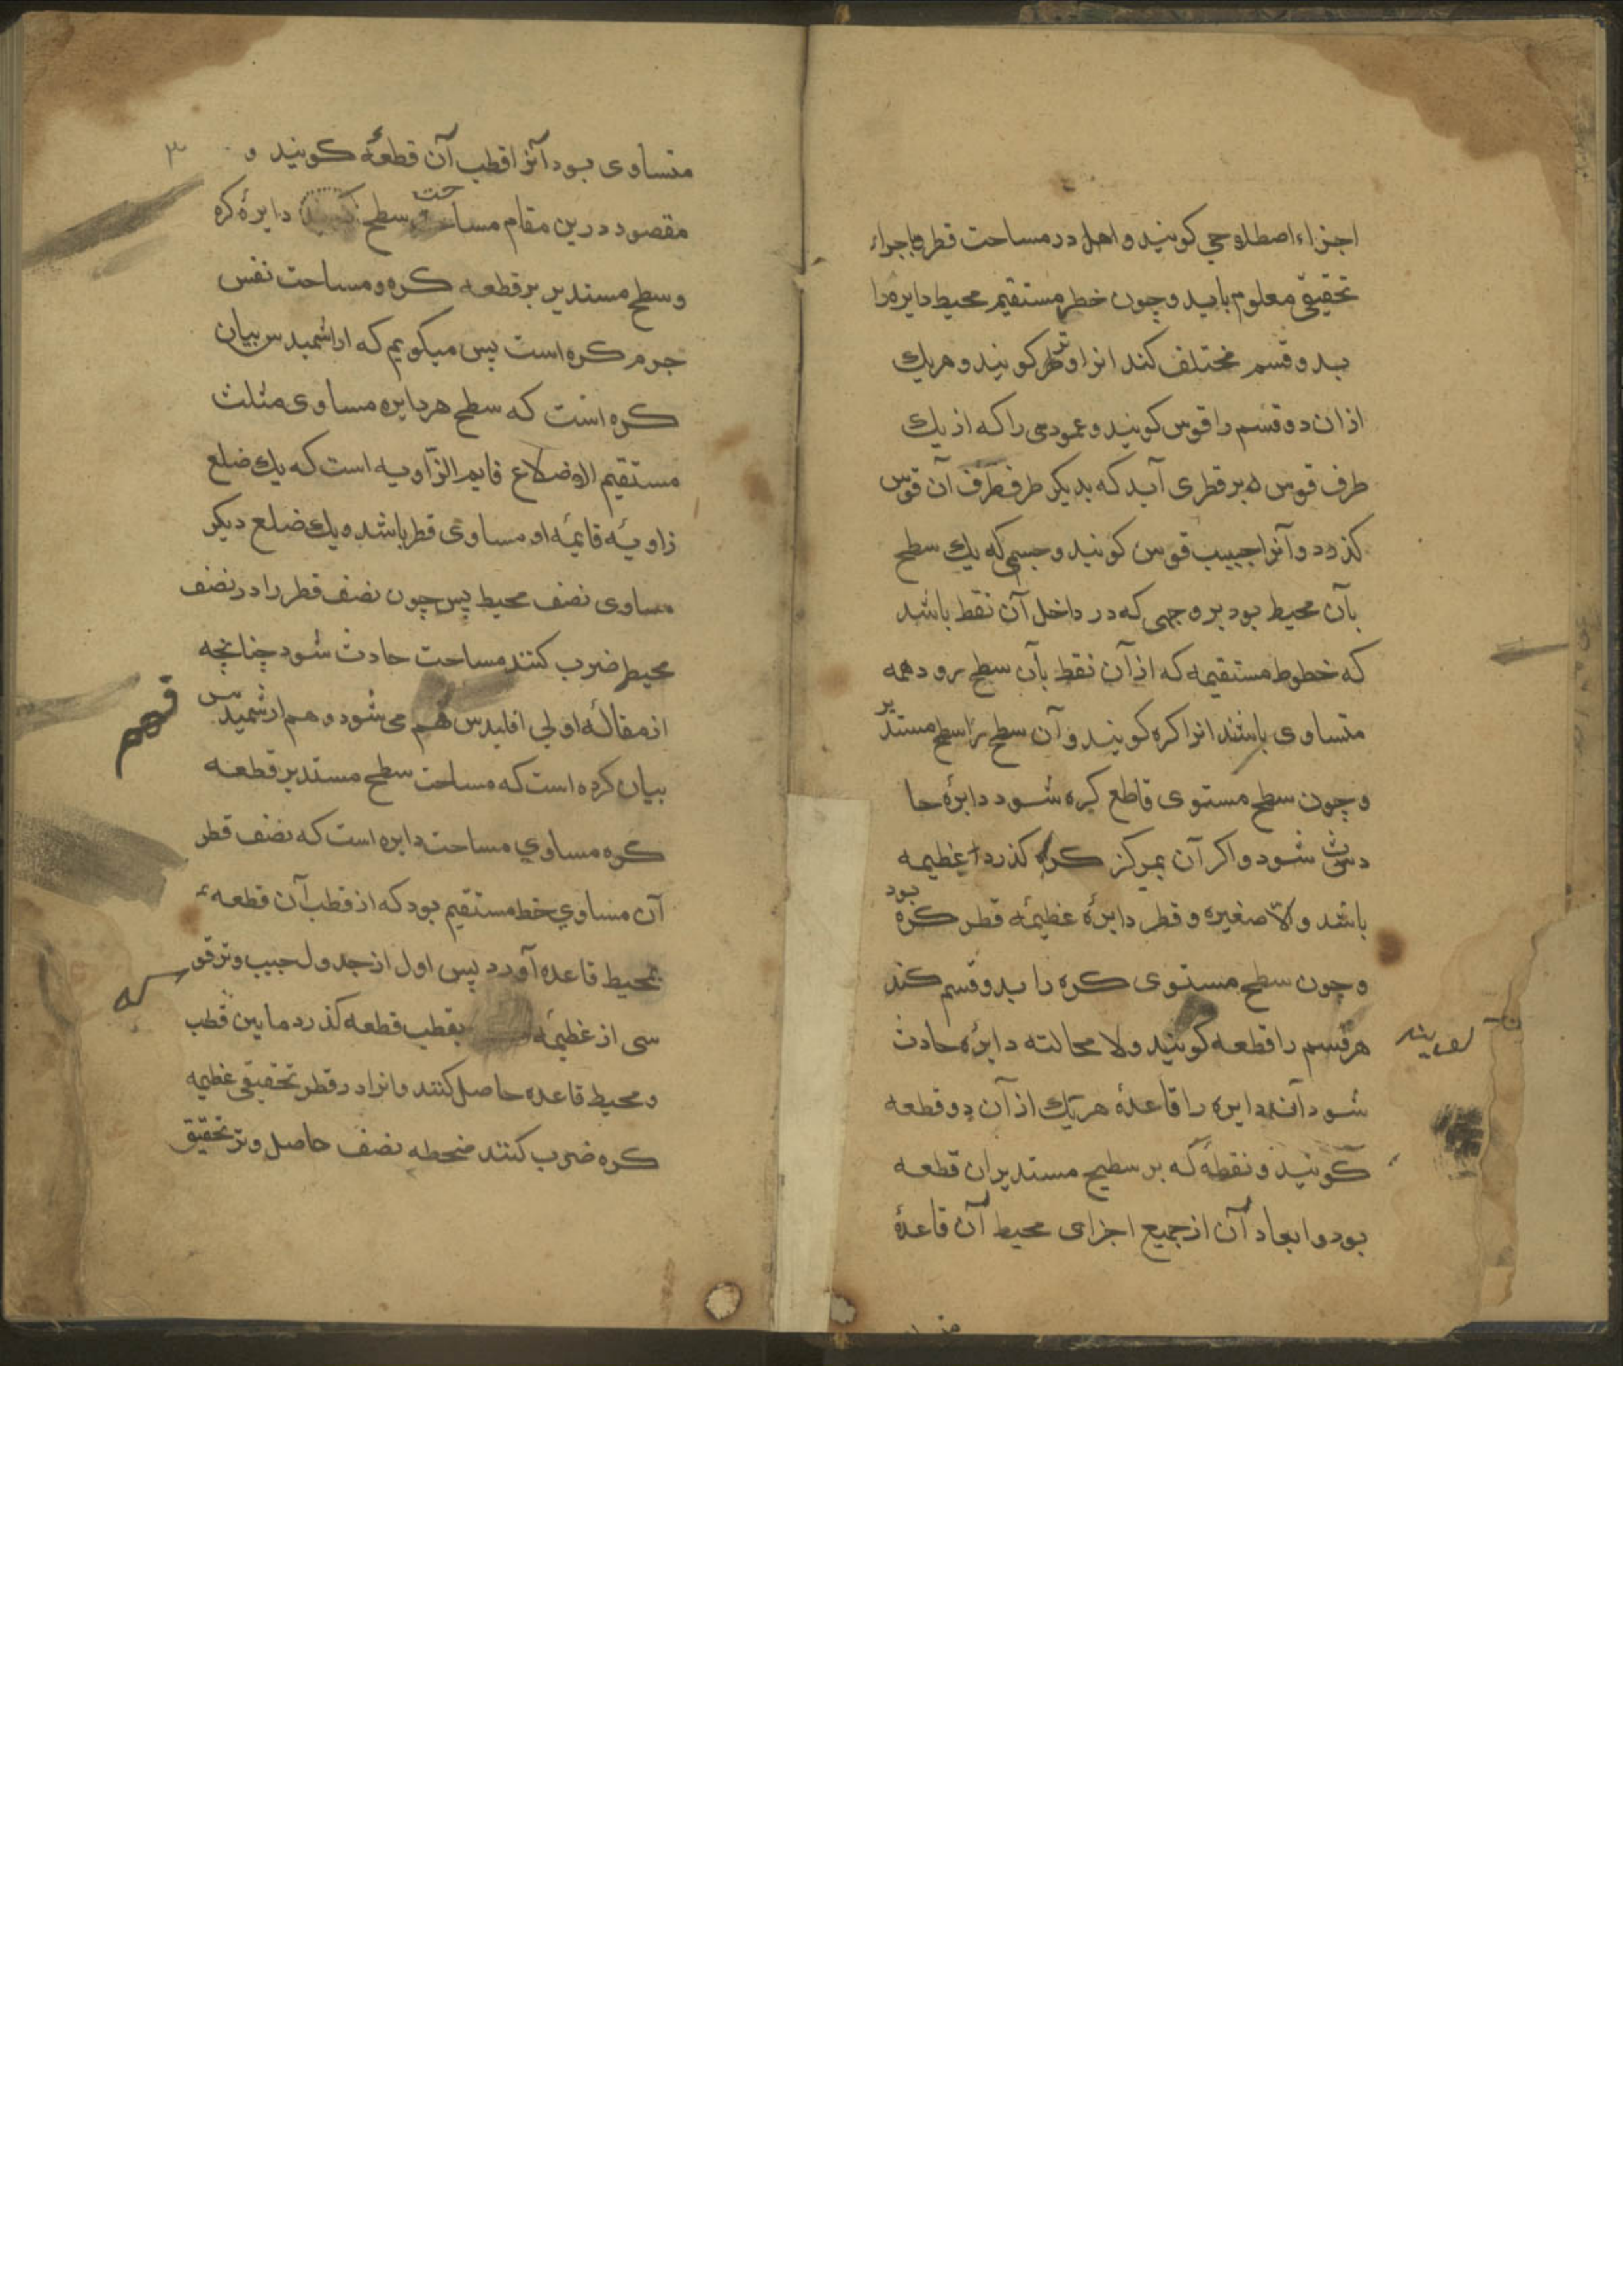 اجزاء اصطلاحی کویند و اهل در مساحت قطر باجزاء
تحقیقی معلوم باید و چون خط مستقیم محیط دایره را
بدو قسم مختلف کند انرا وتر کویند و هریك
ازان دو قسم را قوس کویند و عمودی را که از یك
طرف قوس بر قطری آید که بدیکر طرف آن قوس
کذرد و آنرا جیب قوس کویند و جسمی که یك سطح
بآن محیط بود بر وجهی که در داخل آن نقط باشد
که خطوط مستقیمه که از آن نقط بآن سطح رود همه
متساوی باشند انرا کره کویند و آن سطح را سطح مستدیر
و چون سطح مستوی قاطع کره شود دایرهٔ حا
دث شود و اکر آن بمرکز کره کذرد عظیمه
باشد و الا صغیره و قطر دایرهٔ عظیمهٔ قطر کره بود
و چون سطح مستوی کره را بدو قسم کند
هر قسم را قطعه کویند و لا محالته دایره حادث
شود آن دایره را قاعدهٔ هریك از آن دو قطعه
کویند و نقطهٔ که بر سطیح مستدیر ان قطعه
بود و ابعاد آن از جمیع اجزای محیط آن قاعدهٔ
۳
متساوی بود آنرا قطب آن قطعهٔ کویند و
مقصود درین مقام مساحت سطح دایرهٔ کره
و سطح مستدیر بر قطعه کره و مساحت نفس
جرم کره است پس میکویم که ارشمیدس بیان
کره است که سطح هر دایره مساوی مثلث
مستقیم الاضلاع قایم الزّاویه است که یك ضلع
زاویهٔ قایمهٔ او مساوی قطر باشد و یك ضلع دیکر
مساوی نصف محیط پس چون نصف قطر را در نصف
محیط ضرب کنند مساحت حادث شود چنانچه
از مقالهٔ اولی اقلیدس فهم می شود و هم ارشمیدس
فهم
بیان کرده است که مساحت سطح مستدیر قطعه
کره مساوي مساحت دایره است که نصف قطر
آن مساوي خط مستقیم بود که از قطب آن قطعه
بمحیط قاعده آورد پس اول از جدول جیب وتر قو
سی از عظیمهٔ که بقطب قطعه کذرد مابین قطب
که
و محیط قاعده حاصل کنند و انرا در قطر تحقیقی عظیمه
کره ضرب کنند منحطه نصف حاصل وتر تحقیق